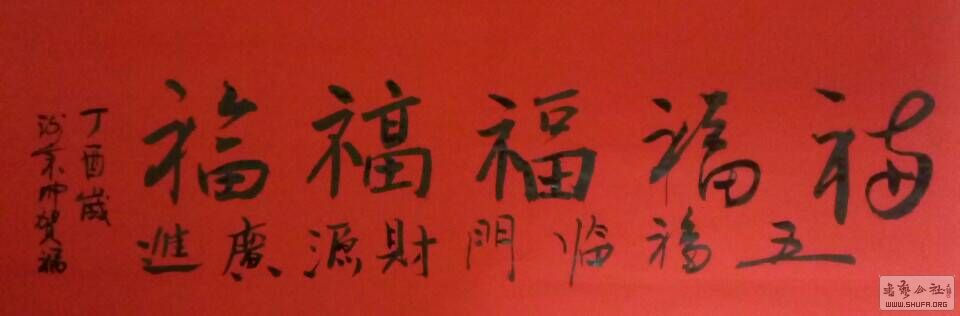 福福福福福
五福临門財源廣進
丁酉歲
贺福
書藝公社
WWW.SHUFA.ORG